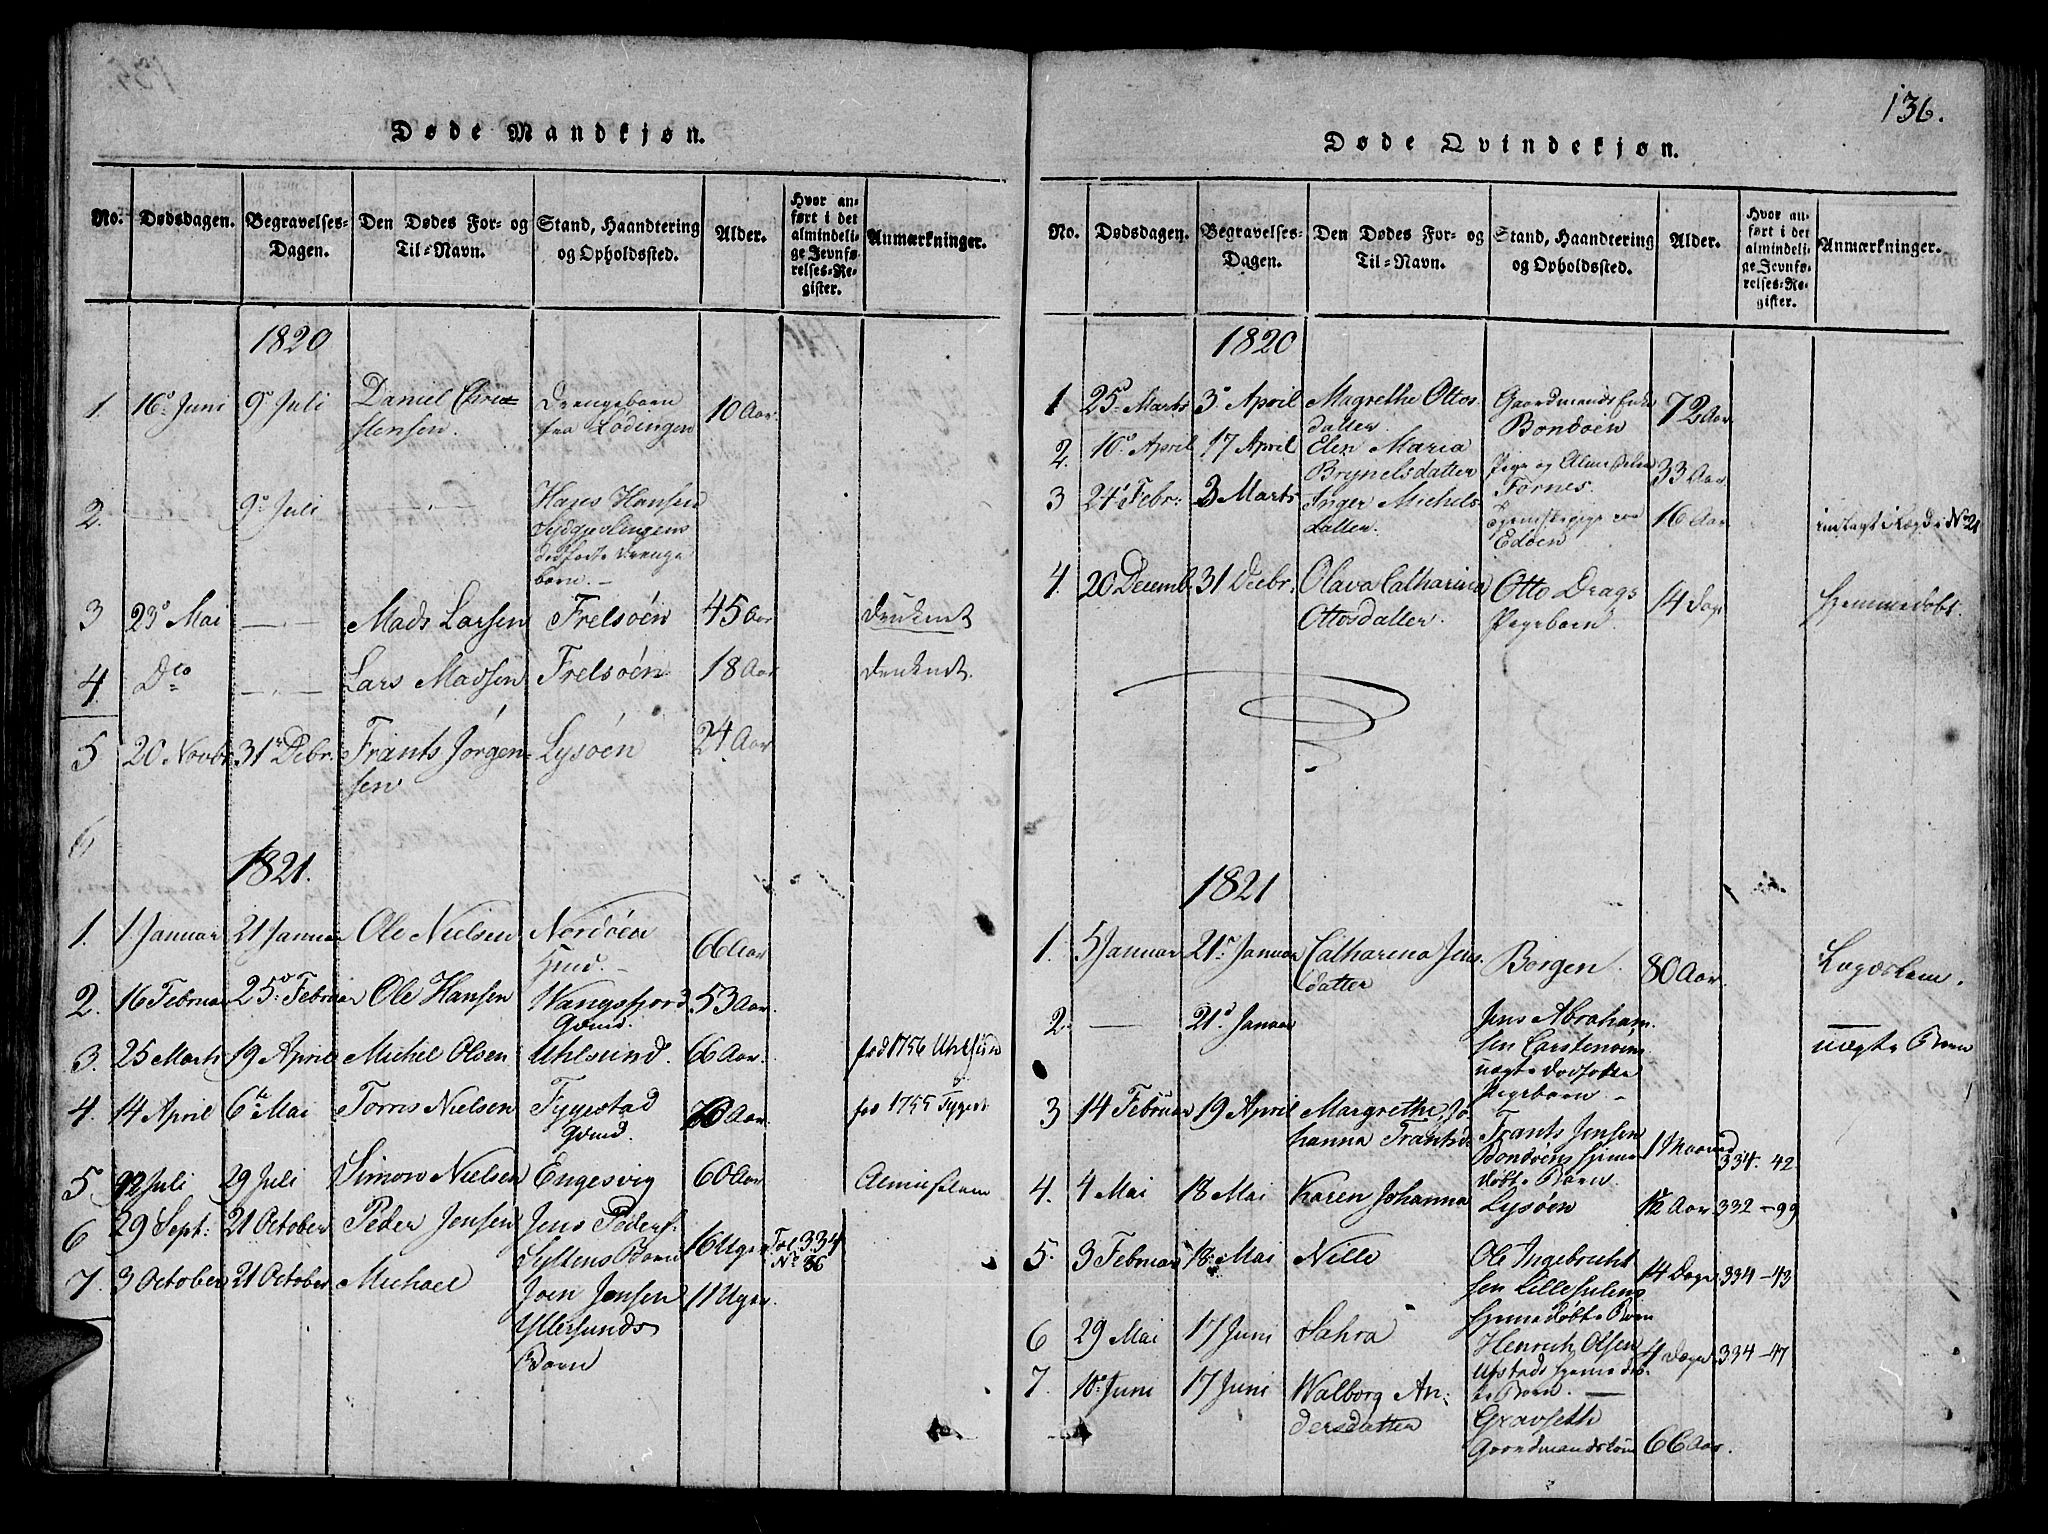 Døde Mandkjøn.
No. Dødsdagen. Begravelses-Dagen. Den Dødes For- og Til-Navn. Stand, Haandtering og Opholdssted. Alder. Hvor anført i det almindelige Jevnførelses-Register. Anmærkninger.
1820
1. 16de Juni 9de Juli Daniel Christensen. Drengebarn fra Lødingen 10 Aar
2. — 9de Juli — Hans Hansen dødfødte Drengebarn. —
3 23de Mai — Mads Larsen Frelsøen 45 Aar druknet
4 Dco — Lars Madsen Frelsøen 18 Aar druknet.
5 20 Novbr 31te Debr. Frants Jørgensen Lysøen 24 Aar
6
1821.
1. 1 Januar 21 Januar Ole Nielsen Nordøen 66 Aar
2. 16 Februar 25de Februar Ole Hansen Wangsfjord Gmd. 53 Aar.
3. 25 Marts 19 April Michel Olsen Uhlsund. 66 Aar. fød 1756 Uhlsund
4. 14 April 6te Mai Torris Nielsen Tyggestad Gmd. 70 Aar. fød 1755
5 12 Juli 29 Juli Simon Nielsen Engesvig 60 Aar Almislem
6 29 Sept: 21 October Peder Jensen Jens Peders. Barn 16 Uger Fol. 334 No 36
7. 3 October 21 October Michael Joen Jensen Yttersunds Barn 11 Uger.
136.
Døde Qvindekjøn.
No. Dødsdagen. Begravelses-Dagen. Den Dødes For- og Til-Navn. Stand, Haandtering og Opholdssted. Alder. Hvor anført i det almindelige Jevnførelses-Register. Anmærkninger.
1820
1 25de Marts 3de April Magrethe Ottosdatter Gaardmands Enke Bondøen 72 Aar
2. 10de April 17 April Elen Maria Brynelsdatter Pige og Fornes. 33 Aar
3 24de Febr: 3 Marts Inger Michelsdatter. Edøen 16 Aar indlagt i Lægd No 21
4. 20 Decemb. 31 Decbr. Olava Catharina Ottosdatter. Otto Drags Pigebarn 14 Dage Hjemmedøbt.
1821
1. 5 Januar 21de Januar Catharina Jensdatter Borgen. 80 Aar. Lægdslem.
2. — 21de Januar Jens Abrahamsen uægte dødfødte Pigebarn — uægte Barn
3 14 Februar 19 April Margrethe Johanna Frantsd. Frants Jensen Bondøens hjemmedøbte Barn. 334. 42
4. 4 Mai 18 Mai Karen Johanna Lysøen 12 Aar 332 - 99
5. 3 Februar 18de Mai Nille Ole Ingebrichtsen hjemmedøbte Barn 14 Dage 334 - 43
6 29 Mai 17 Juni Sahra Henrich Olsen hjemmedøbte Barn. — 4 Dage 334 - 47
7. 10de Juni 17 Juni Walborg Andersdatter Gravseth 66 Aar.